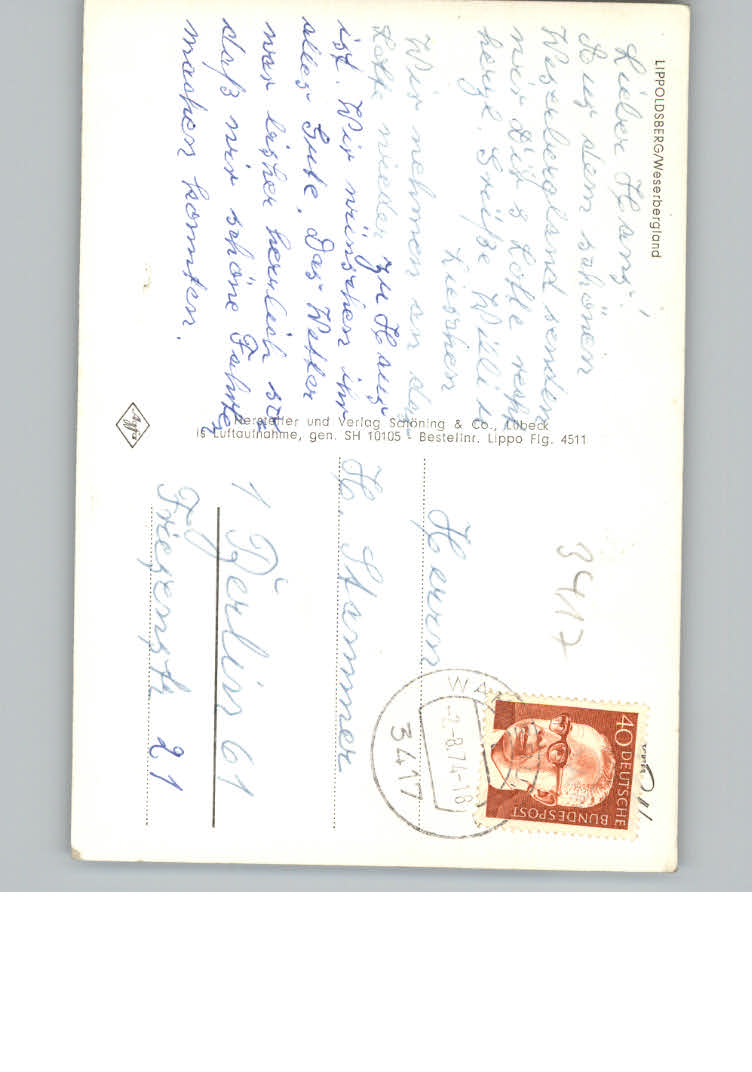 LIPPOLDSBERG/Weserbergland
Lieber Hans!
Aus dem schönen
Weserbergland senden
wir Dir & Lotte recht
herzl. Grüße Willi u
Lieschen
Wir nehmen an das
Lotte wieder zu Haus
ist. Wir wünschen ihr
alles Gute. Das Wetter
war bisher herrlich so
daß wir schöne Fahrten
machen konnten.
Hersteller und Verlag Schöning & Co., Lübeck
is Luftaufnahme, gen. SH 10105 - Bestellnr. Lippo Flg. 4511
Agfa
3417
40 DEUTSCHE
BUNDESPOST
WA
-2.-8.74-18
3417
Herrn
H. Stammer
1 Berlin 61
Friesenstr 21